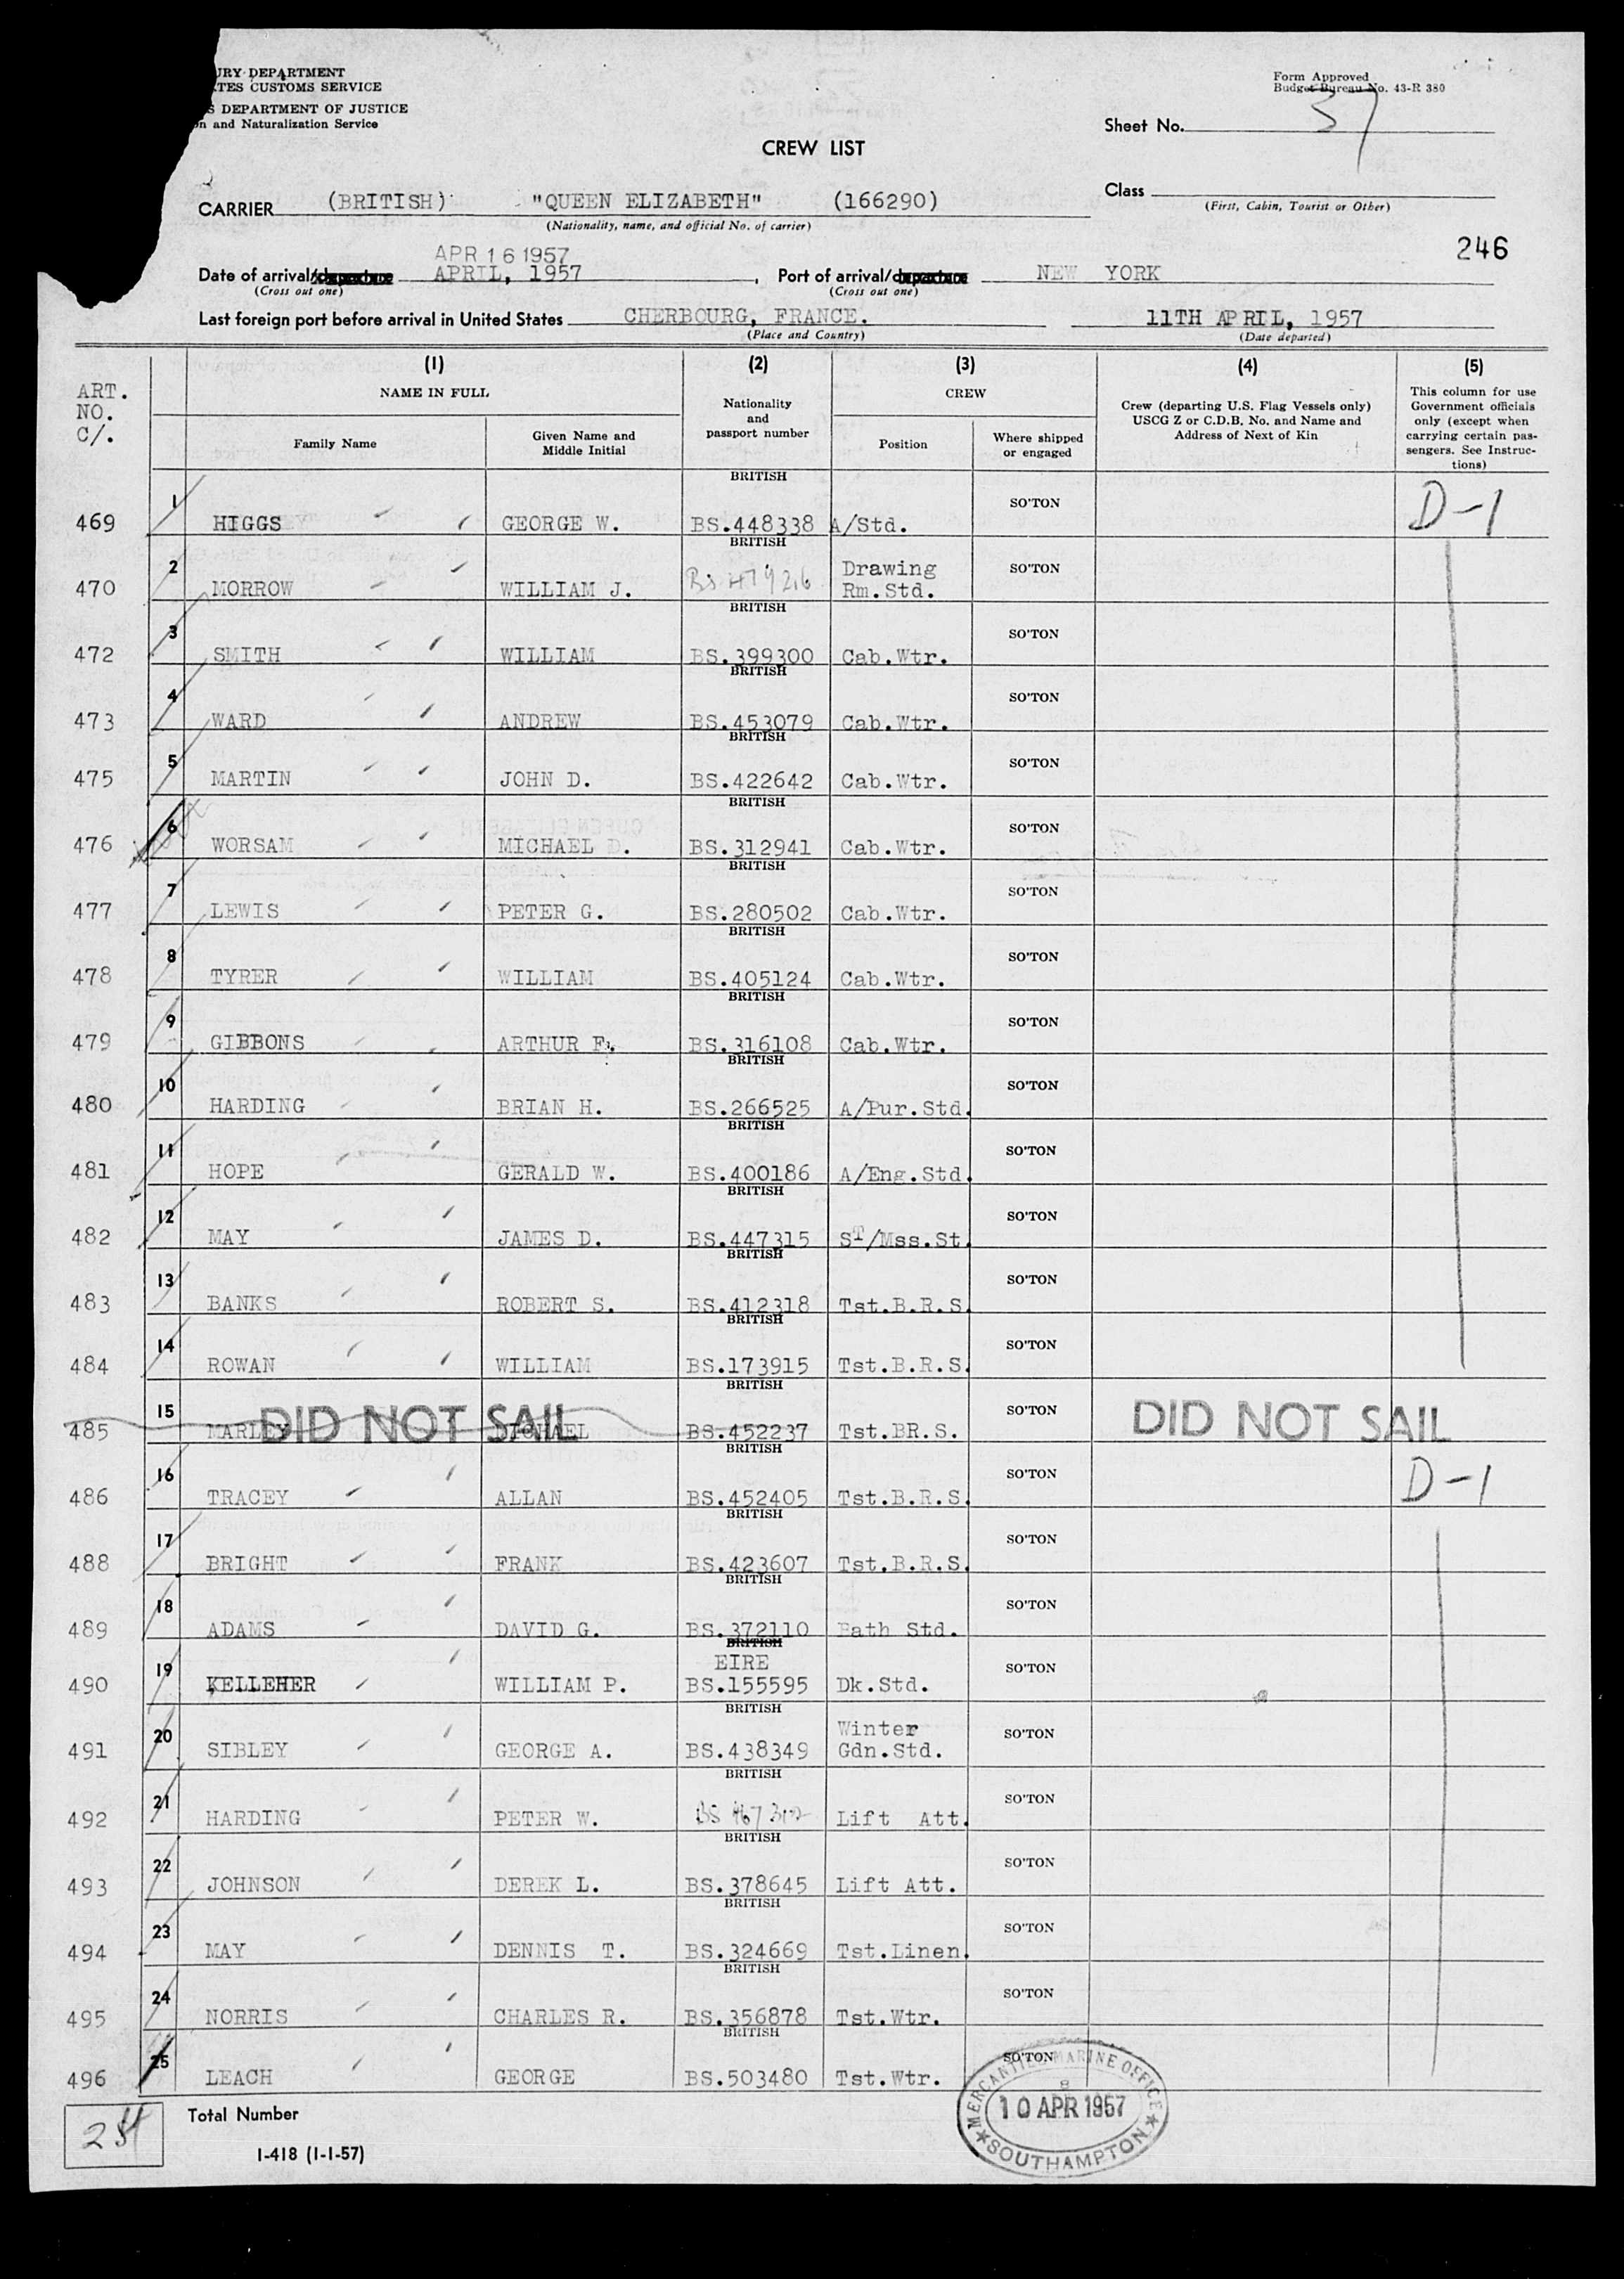 URY DEPARTMENT
TES CUSTOMS SERVICE
S DEPARTMENT OF JUSTICE
n and Naturalization Service
Form Approved
Budget Bureau No. 43-R 380
Sheet No. 37
CREW LIST
Class
(First, Cabin, Tourist or Other)
CARRIER (BRITISH) "QUEEN ELIZABETH" (166290)
(Nationality, name, and official No. of carrier)
246
APR 16 1957
Date of arrival/departure APRIL, 1957, Port of arrival/departure NEW YORK
(Cross out one) (Cross out one)
Last foreign port before arrival in United States CHERBOURG, FRANCE. 11TH APRIL, 1957
(Place and Country) (Date departed)
ART. NO. C/.
(1) (2) (3) (4) (5)
NAME IN FULL
Family Name
Given Name and Middle Initial
Nationality and passport number
CREW
Position
Where shipped or engaged
Crew (departing U.S. Flag Vessels only) USCG Z or C.D.B. No. and Name and Address of Next of Kin
This column for use Government officials only (except when carrying certain passengers. See Instructions)
469 1 HIGGS GEORGE W. BRITISH BS.448338 A/Std. SO'TON D-1
470 2 MORROW WILLIAM J. BRITISH BS 479216 Drawing Rm.Std. SO'TON
472 3 SMITH WILLIAM BRITISH BS.399300 Cab.Wtr. SO'TON
473 4 WARD ANDREW BRITISH BS.453079 Cab.Wtr. SO'TON
475 5 MARTIN JOHN D. BRITISH BS.422642 Cab.Wtr. SO'TON
476 6 WORSAM MICHAEL D. BRITISH BS.312941 Cab.Wtr. SO'TON
477 7 LEWIS PETER G. BRITISH BS.280502 Cab.Wtr. SO'TON
478 8 TYRER WILLIAM BRITISH BS.405124 Cab.Wtr. SO'TON
479 9 GIBBONS ARTHUR F. BRITISH BS.316108 Cab.Wtr. SO'TON
480 10 HARDING BRIAN H. BRITISH BS.266525 A/Pur.Std. SO'TON
481 11 HOPE GERALD W. BRITISH BS.400186 A/Eng.Std. SO'TON
482 12 MAY JAMES D. BRITISH BS.447315 ST/Mss.St. SO'TON
483 13 BANKS ROBERT S. BRITISH BS.412318 Tst.B.R.S. SO'TON
484 14 ROWAN WILLIAM BRITISH BS.173915 Tst.B.R.S. SO'TON
485 15 MARLEY MICHAEL DID NOT SAIL BRITISH BS.452237 Tst.BR.S. SO'TON DID NOT SAIL
486 16 TRACEY ALLAN BRITISH BS.452405 Tst.B.R.S. SO'TON D-1
488 17 BRIGHT FRANK BRITISH BS.423607 Tst.B.R.S. SO'TON
489 18 ADAMS DAVID G. BRITISH BS.372110 Bath Std. SO'TON
490 19 KELLEHER WILLIAM P. BRITISH EIRE BS.155595 Dk.Std. SO'TON
491 20 SIBLEY GEORGE A. BRITISH BS.438349 Winter Gdn.Std. SO'TON
492 21 HARDING PETER W. BRITISH BS Lift Att. SO'TON
493 22 JOHNSON DEREK L. BRITISH BS.378645 Lift Att. SO'TON
494 23 MAY DENNIS T. BRITISH BS.324669 Tst.Linen. SO'TON
495 24 NORRIS CHARLES R. BRITISH BS.356878 Tst.Wtr. SO'TON
496 25 LEACH GEORGE BRITISH BS.503480 Tst.Wtr. SO'TON
MERCANTILE MARINE OFFICE
8
10 APR 1957
SOUTHAMPTON
Total Number
I-418 (1-1-57)